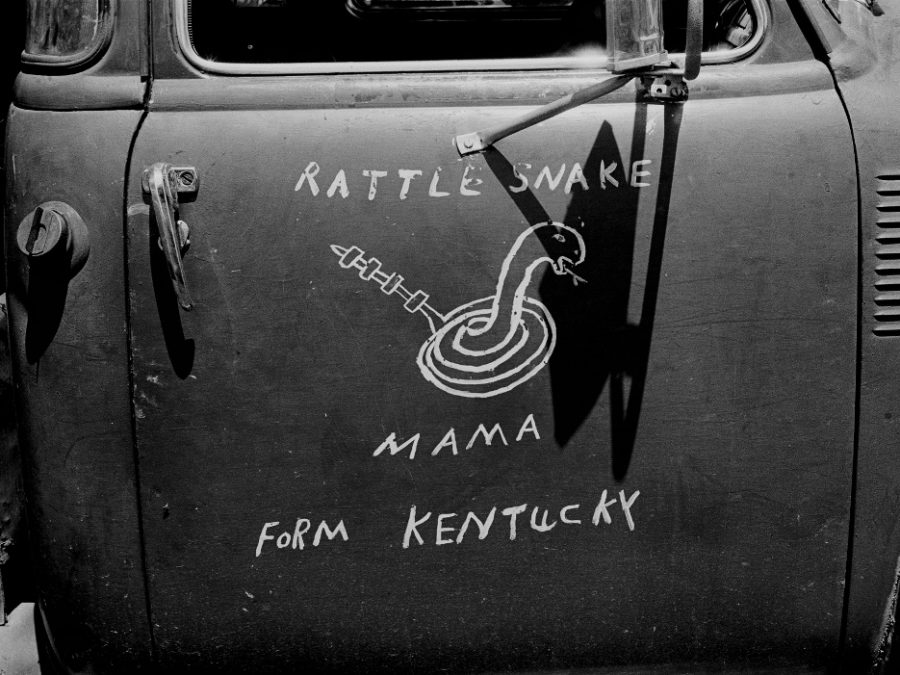 RATTLE SNAKE
MAMA
FORM KENTUCKY